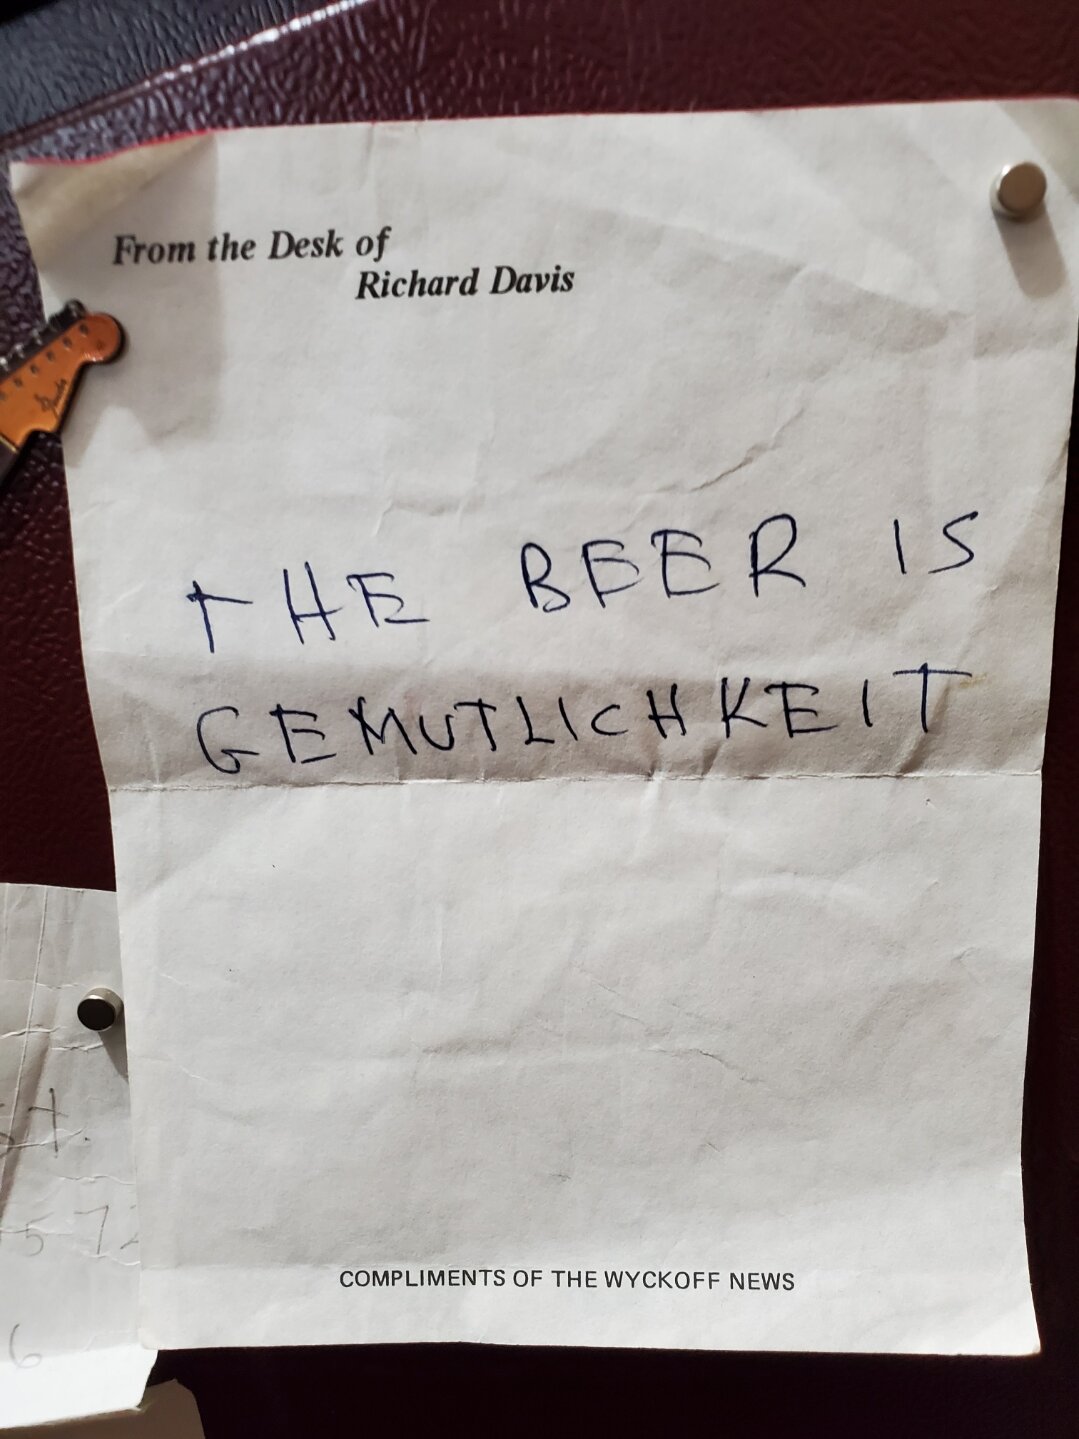 From the Desk of
Richard Davis
THE BEER IS
GEMUTLICHKEIT
COMPLIMENTS OF THE WYCKOFF NEWS
572
6